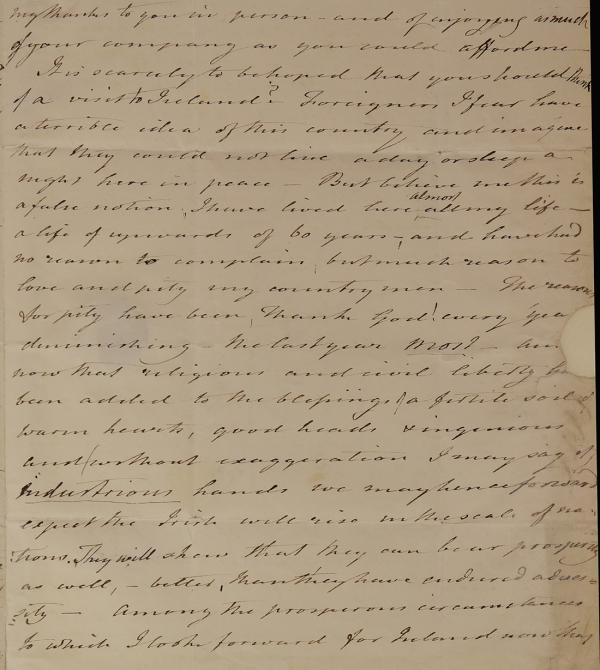 my thanks to you in person - and of enjoying as much
of your company as you could afford me -
It is scarcely to be hoped that you should think
of a visit to Ireland? Foreigners I fear have
a terrible idea of this country and imagine
that they could not live a day or sleep a
night here in peace - But believe me this is
a false notion. I have lived here almost all my life -
a life of upwards of 60 years -, and have had
no reason to complain, but much reason to
love and pity my countrymen - The reasons
for pity have been, Thank God! every yea
diminishing - the last year most - an
now that religious and civil liberty ha
been added to the blessings (a fertile soil
warm hearts, good heads & ingenious
and (without exaggeration I may say of
industrious hands we may henceforward
expect the Irish will rise in the scale of na-
tions. They will shew that they can bear prosperity
as well, - better, than they have endured adver-
sity - Among the prosperous circumstances
to which I look forward for Ireland now that